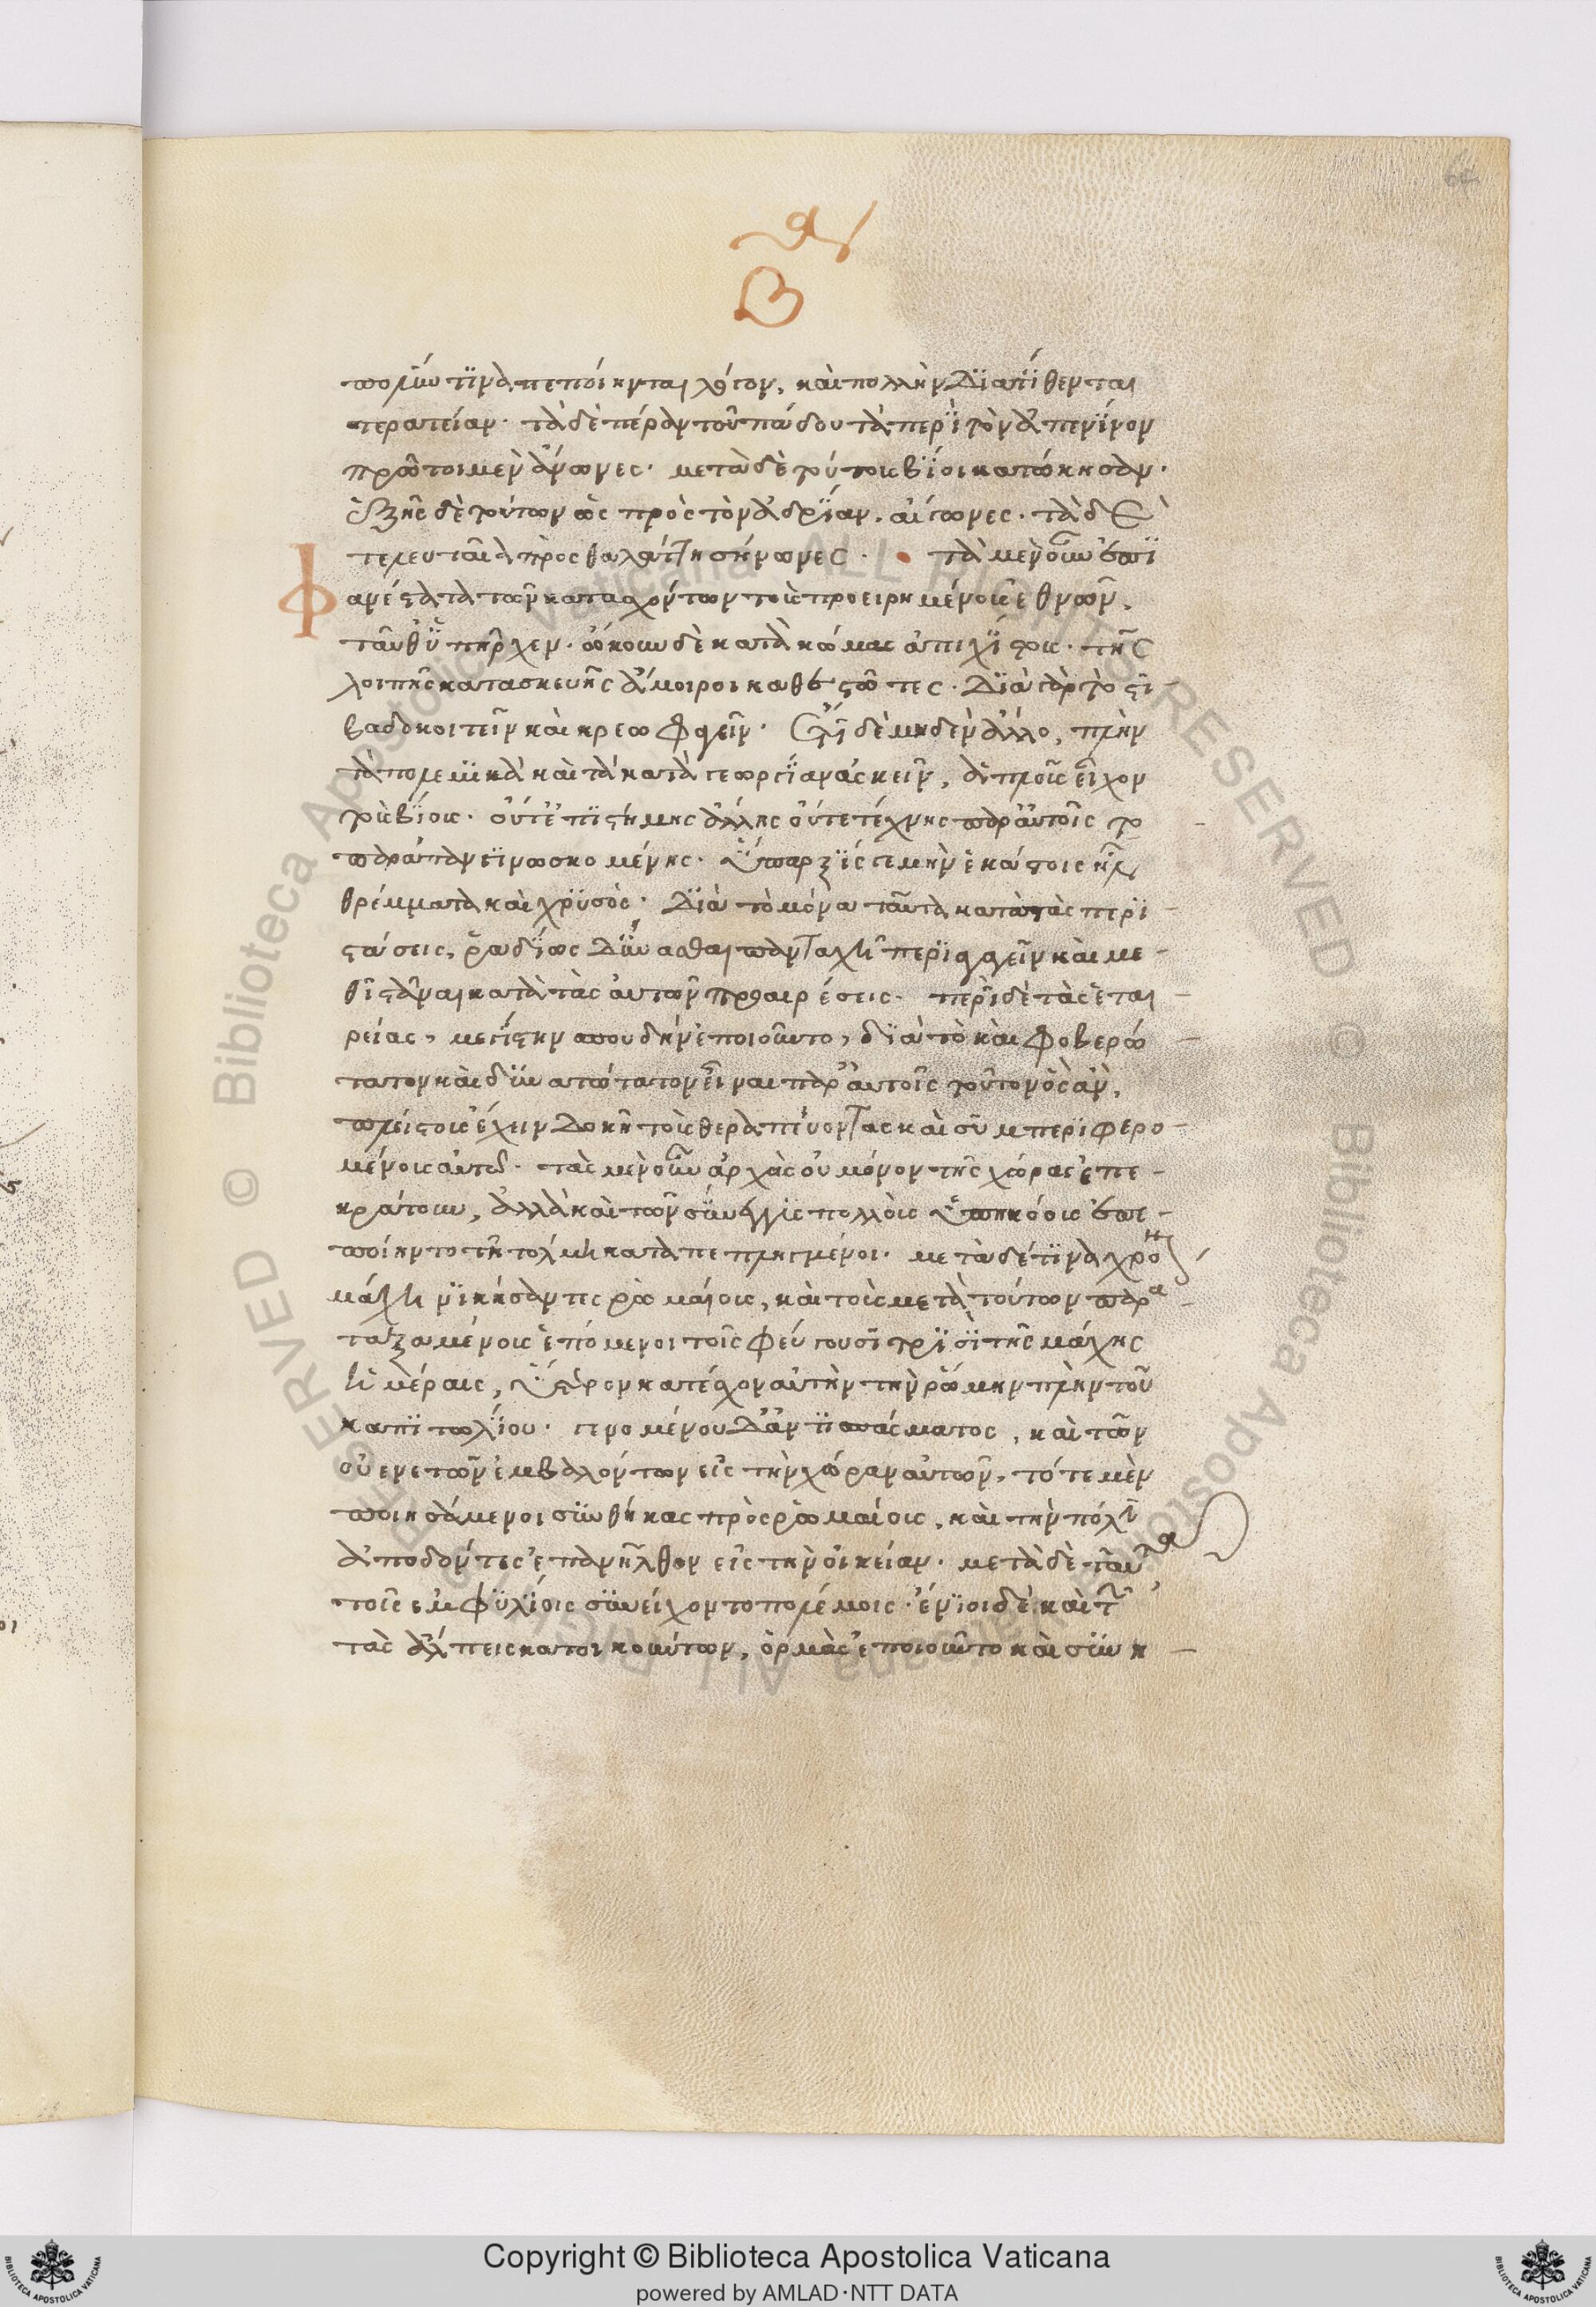 β
πολύν τινα πεποίηνται λόγον, καὶ πολλὴν διατίθενται
τερατείαν· τὰ δὲ πέραν τοῦ πάδου τὰ περὶ τὸν ἀπεννῖνον
πρῶτοι μὲν ἄνωνες· μετὰ δὲ τούτους βίοι κατῴκησαν·
ἑξῆς δὲ τούτων ὡς πρὸς τὸν ἀδρίαν, αἴγωνες· τὰ δὲ
τελευταῖα πρὸς θαλάττῃ σήνωνες· τὰ μὲν οὖν ἐπι
φανέστατα τῶν κατασχόντων τοὺς προειρημένους ἐθνῶν,
ταῦθ' ὑπῆρχεν· ᾤκουν δὲ κατὰ κώμας ἀτειχίστους· τῆς
λοιπῆς κατασκευῆς ἄμοιροι καθεστῶτες· διὰ γὰρ τὸ στι
βαδοκοιτεῖν καὶ κρεωφαγεῖν· ἔτι δὲ μηδὲν ἄλλο, πλὴν
τὰ πολεμικὰ καὶ τὰ κατὰ γεωργίαν ἀσκεῖν, ἁπλοῦς εἶχον
τοὺς βίους· οὔτ' ἐπιστήμης ἄλλης οὔτε τέχνης παρ' αὐτοῖς το
παράπαν γινωσκομένης· ὕπαρξίς γε μὴν ἑκάστοις ἦν
θρέμματα καὶ χρυσός· διὰ τὸ μόνα ταῦτα κατὰ τὰς περι
στάσεις, ῥᾳδίως δύνασθαι πανταχῇ περιαγαγεῖν καὶ με
θιστάναι κατὰ τὰς αὑτῶν προαιρέσεις· περὶ δὲ τὰς ἑται
ρείας, μεγίστην σπουδὴν ἐποιοῦντο, διὰ τὸ καὶ φοβερώ
τατον καὶ δυνατώτατον εἶναι παρ' αὐτοῖς τοῦτον ὃς ἂν,
πλείστους ἔχειν δοκῇ τοὺς θεραπεύοντας καὶ συμπεριφερο
μένους αὐτῷ· τὰς μὲν οὖν ἀρχὰς οὐ μόνον τῆς χώρας ἐπε
κράτουν, ἀλλὰ καὶ τῶν σύνεγγυς πολλοὺς ὑπηκόους ἐπε
ποίηντο τῇ τόλμῃ καταπεπληγμένοι· μετὰ δέ τινα χρόνον
μάχῃ νικήσαντες ῥωμαίους, καὶ τοὺς μετὰ τούτων παρα
ταξαμένους ἑπόμενοι τοῖς φεύγουσι τρισὶ τῆς μάχης
ἡμέραις, ὕστερον κατέσχον αὐτὴν τὴν ῥώμην πλὴν τοῦ
καπιτωλίου· γενομένου δ' ἀντισπάσματος, καὶ τῶν
οὐενετῶν ἐμβαλόντων εἰς τὴν χώραν αὐτῶν, τότε μὲν
ποιησάμενοι συνθήκας πρὸς ῥωμαίους, καὶ τὴν πόλιν
ἀποδόντες ἐπανῆλθον εἰς τὴν οἰκείαν· μετὰ δὲ ταῦτα
τοῖς ἐμφυλίοις συνείχοντο πολέμοις· ἔνιοι δὲ καὶ τῶν
τὰς ἄλπεις κατοικούντων, ὁρμὰς ἐποιοῦντο καὶ συνη